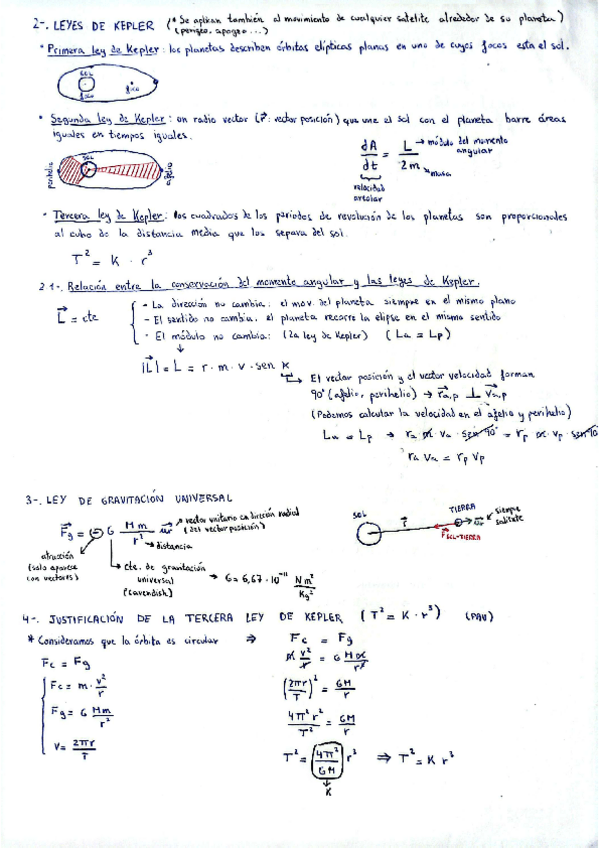 2-. LEYES DE KEPLER (* Se aplican también al movimiento de cualquier satélite alrededor de su planeta)
(perigeo, apogeo...)
* Primera ley de Kepler: los planetas describen órbitas elípticas planas en uno de cuyos focos esta el sol.
SOL
foco
foco
* Segunda ley de Kepler: un radio vector (r⃗: vector posición) que une el sol con el planeta barre áreas
iguales en tiempos iguales.
perihelio
SOL
afelio
dA/dt = L/2m
módulo del momento angular
masa
velocidad areolar
* Tercera ley de Kepler: los cuadrados de los periodos de revolución de los planetas son proporcionales
al cubo de la distancia media que los separa del sol.
T² = K · r³
2.1-. Relación entre la conservación del momento angular y las leyes de Kepler.
L⃗ = cte
- La dirección no cambia: el mov. del planeta siempre en el mismo plano
- El sentido no cambia: el planeta recorre la elipse en el mismo sentido
- El módulo no cambia: (2a ley de Kepler) (La = Lp)
|L⃗| = L = r · m · v · sen α
El vector posición y el vector velocidad forman
90° (afelio, perihelio) → r⃗a,p ⊥ v⃗a,p
(Podemos calcular la velocidad en el afelio y perihelio)
La = Lp → ra m va · sen 90° = rp m vp sen 90°
ra va = rp vp
3-. LEY DE GRAVITACIÓN UNIVERSAL
F⃗g = - G Mm/r² u⃗r
vector unitario en dirección radial
(del vector posición)
distancia
atracción
(solo aparece
con vectores)
cte. de gravitación
universal
(Cavendish)
G = 6,67 · 10⁻¹¹ Nm²/Kg²
SOL
r⃗
TIERRA
u⃗r
siempre
satélite
F⃗SOL-TIERRA
4-. JUSTIFICACIÓN DE LA TERCERA LEY DE KEPLER (T² = K · r³) (PAU)
* Consideramos que la órbita es circular ⇒
Fc = Fg
Fc = m · v²/r
Fg = G Mm/r²
v = 2πr/T
Fc = Fg
m v²/r = G Mm/r²
(2πr/T)² = GM/r
4π²r²/T² = GM/r
T² = 4π²/GM r³ ⇒ T² = K r³
K